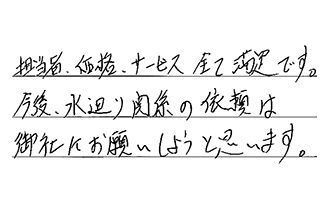 担当者、価格、サービス全て満足です。
今後、水辺り関係の依頼は
御社にお願いしようと思います。